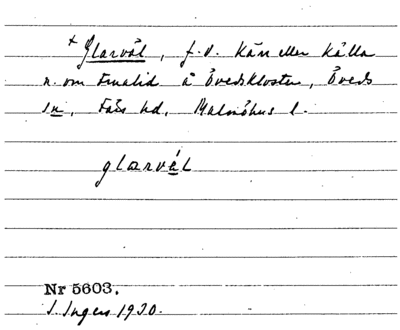 × Glarvål, f.d. kärr eller källa
n. om Emalid å Övedskloster, Öveds
sn, Färs hd, Malmöhus l.
glarvål
Nr 5603.
S. Ingers 1930.